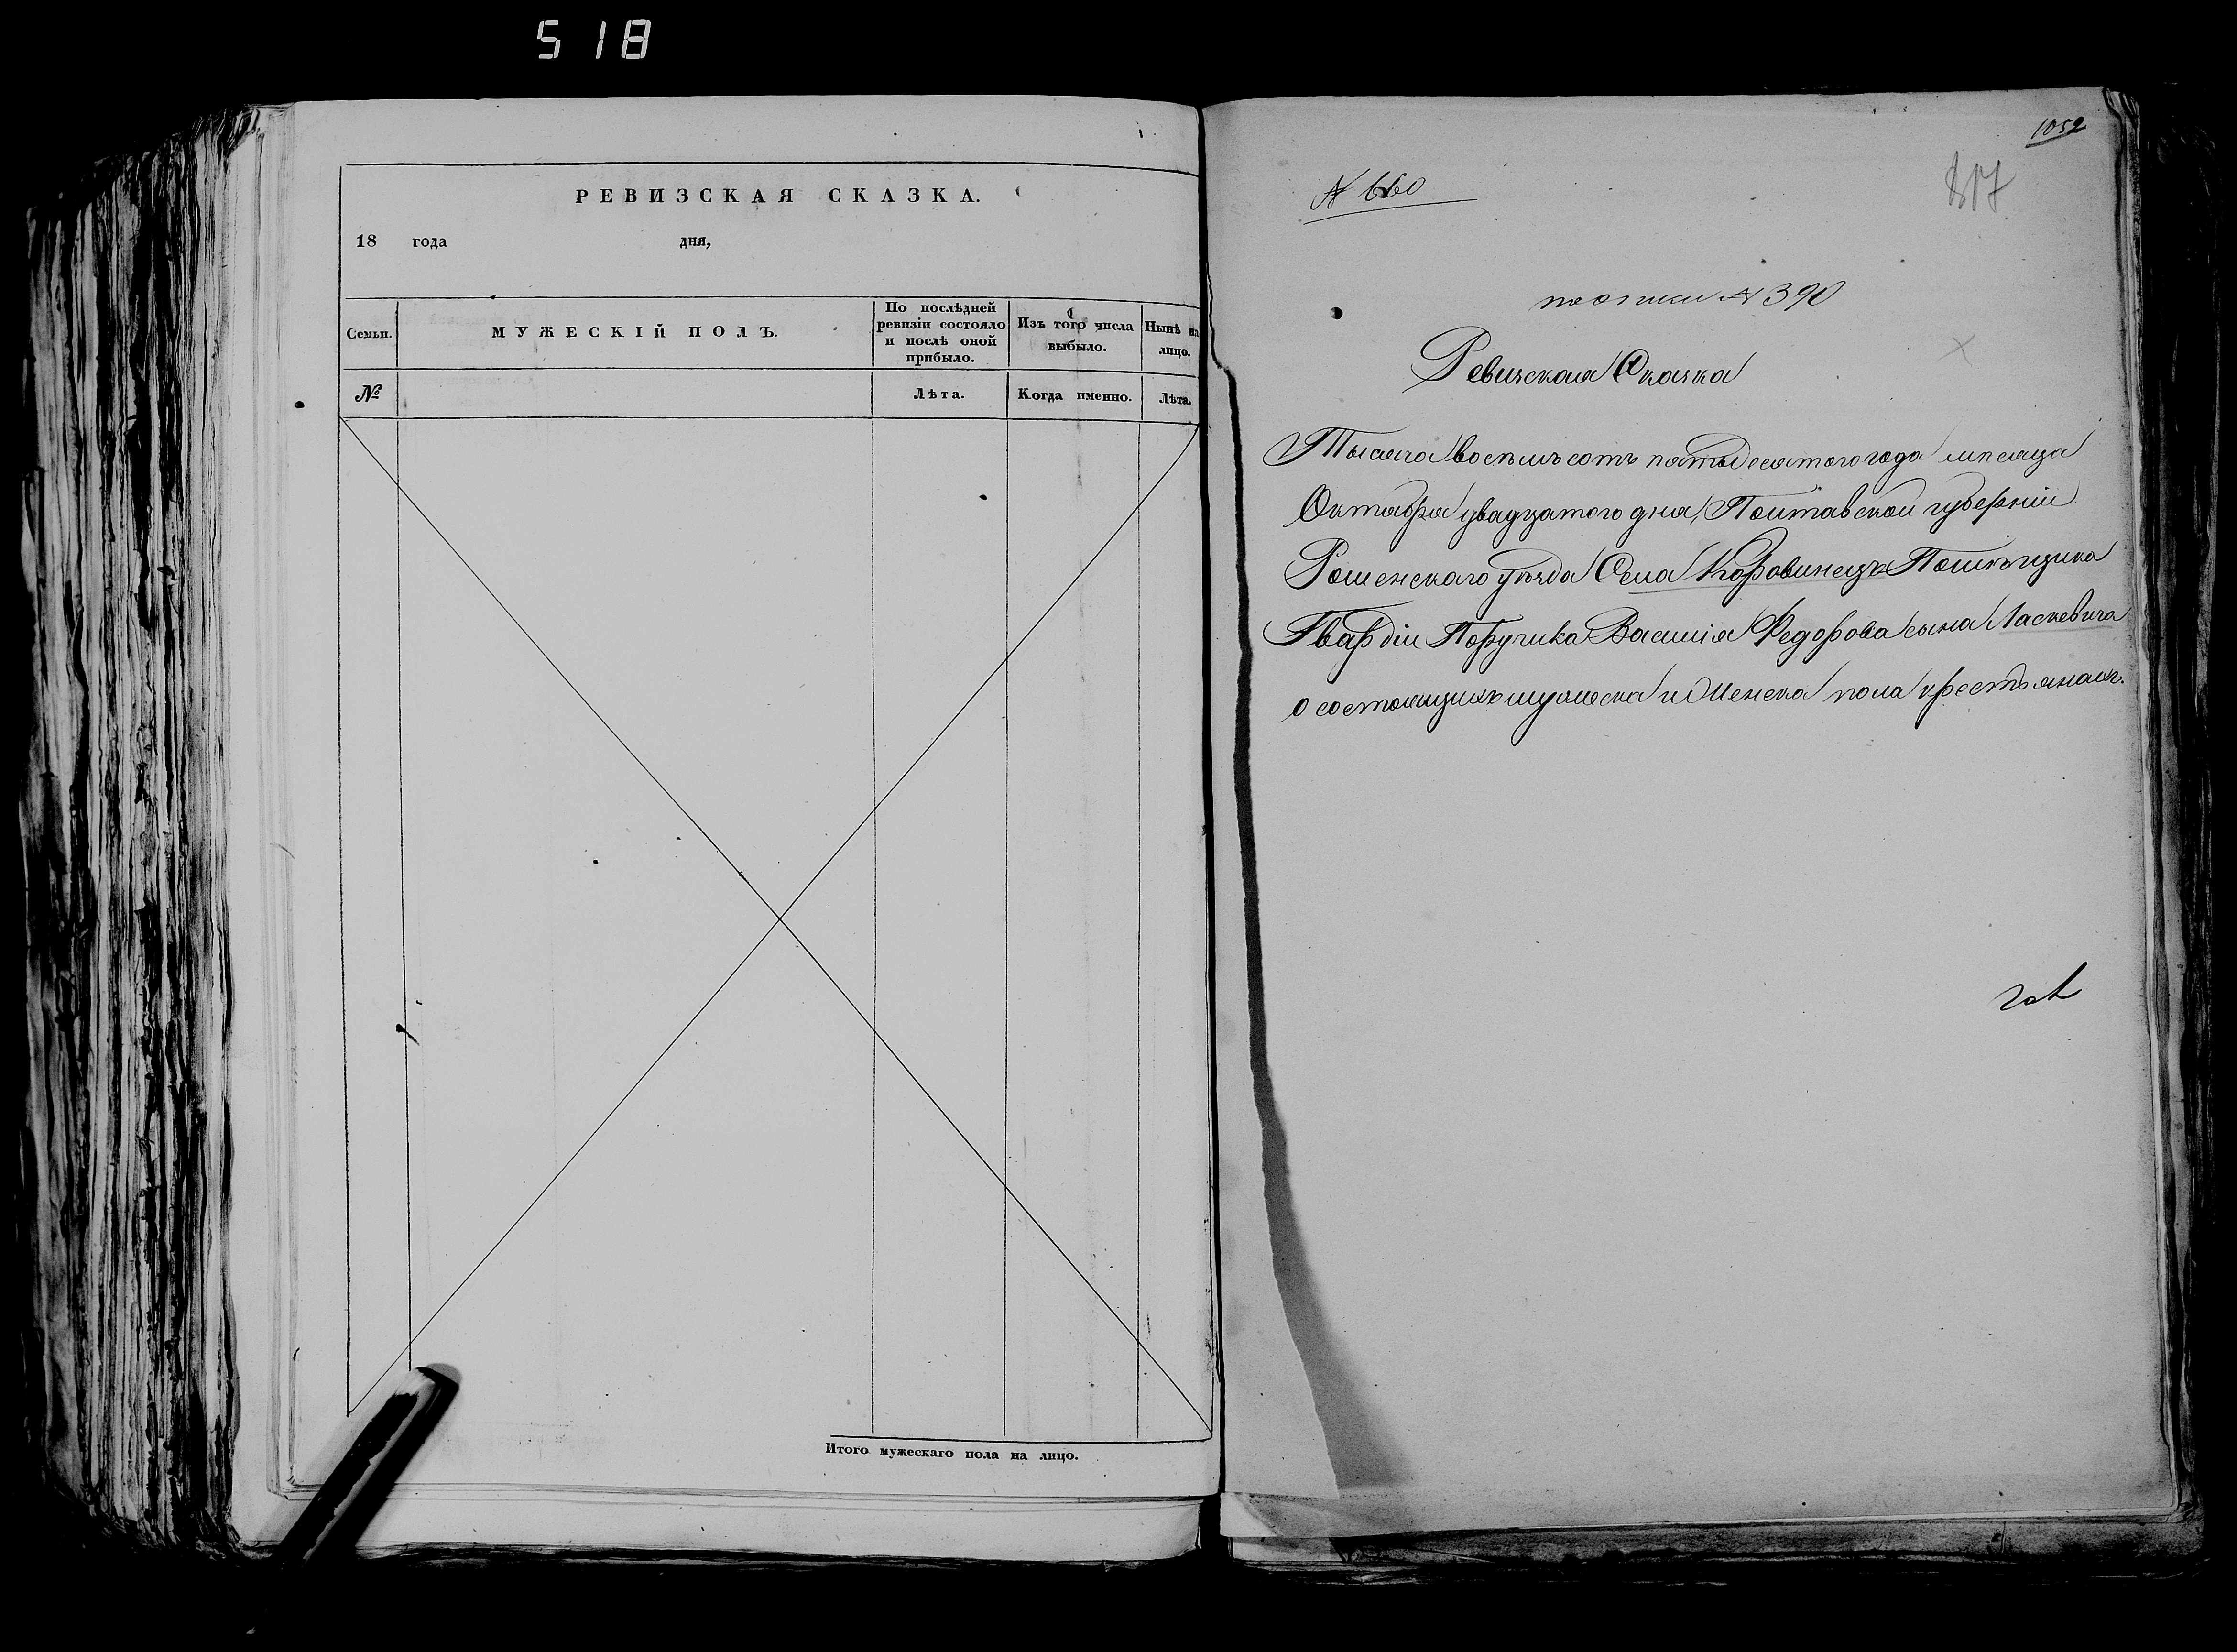 518
РЕВИЗСКАЯ СКАЗКА.
18 года дня,
Семьи.
МУЖЕСКІЙ ПОЛЪ.
По послѣдней ревизіи состояло и послѣ оной прибыло.
Изъ того числа выбыло.
Нынѣ на лицо.
№
Лѣта.
Когда именно.
Лѣта.
Итого мужескаго пола на лицо.
1052
N 660
N 390
Ревизская Сказка
Тысяча восемьсотъ пятьдесятого года месяца
Октабра двадцатого дня, Полтавской губерніи
Роменского уѣзда Села Коровинецъ Помѣщика
Гвардіи Поручика Василія Федорова сына Ласкевича
о состоящихъ мужеска и Женска пола крестьянахъ.